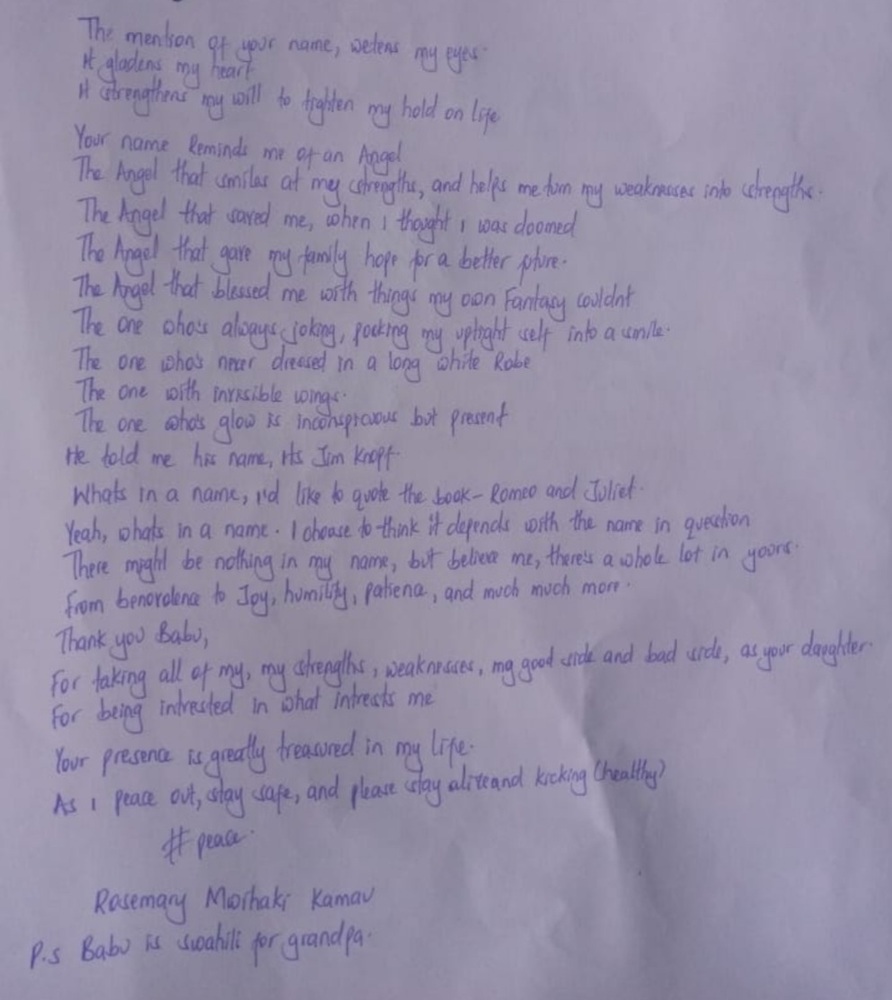 The mention of your name, wetens my eyes.
It gladens my heart
It strengthens my will to tighten my hold on life
Your name Reminds me of an Angel
The Angel that smiles at my strengths, and helps me turn my weaknesses into strengths.
The Angel that saved me, when I thought I was doomed
The Angel that gave my family hope for a better future.
The Angel that blessed me with things my own Fantasy couldnt
The one who's always joking, pocking my uptight self into a smile.
The one who's never dressed in a long white Robe
The one with invisible wings.
The one who's glow is inconspicuous but present
He told me his name, its Jim Knopf.
Whats in a name, I'd like to quote the book - Romeo and Juliet.
Yeah, whats in a name. I choose to think it depends with the name in question
There might be nothing in my name, but believe me, there's a whole lot in yours.
From benevolence to Joy, humility, patience, and much much more.
Thank you Babu,
For taking all of my, my strengths, weaknesses, my good side and bad side, as your daughter.
For being intrested in what intrests me
Your presence is greatly treasured in my life.
As I peace out, stay safe, and please stay alive and kicking (healthy)
# peace.
Rosemary Kamau
P.s Babu is swahili for grandpa.